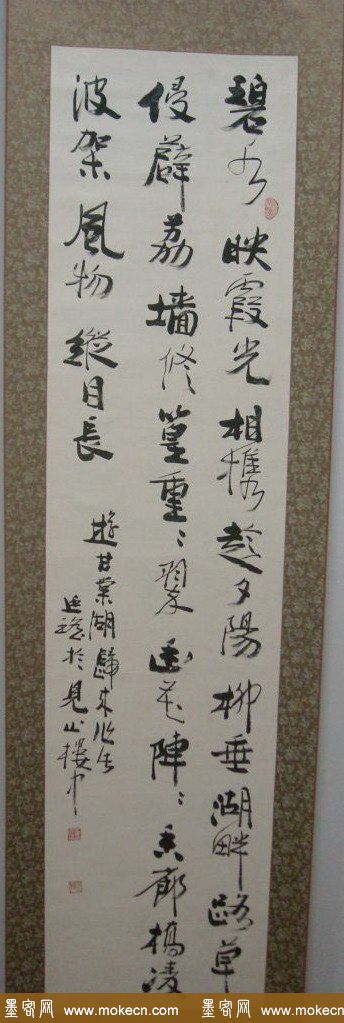 碧水映霞光相携趁夕阳柳垂湖畔路草
侵薜荔墙修篁重〻翠幽花阵〻香廊桥凌
波架风物纵目长
游甘棠湖归来作
于见山楼中
墨客网 www.mokecn.com 墨客网 www.mokecn.com